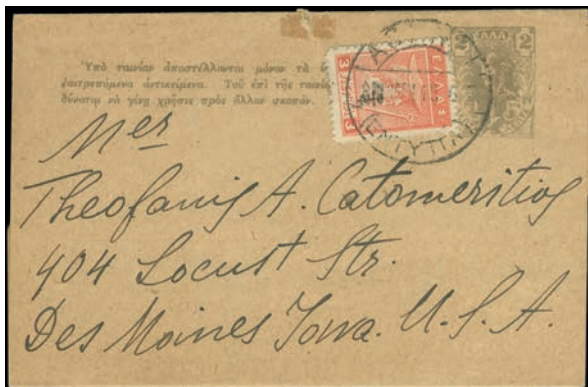 Ὑπὸ ταινίαν ἀποστέλλονται μόνον τὰ
ἐπιτρεπόμενα ἀντικείμενα. Τοῦ ἐπὶ τῆς
δύναται νὰ γίνῃ χρῆσις πρὸς ἄλλον σκοπόν.
3 ΕΛΛΑΣ
3
ΕΛΛΑΣ
2 2
Mer
Theofanis A. Catomeritios
404 Locust Str.
Des Moines Iowa. U.S.A.